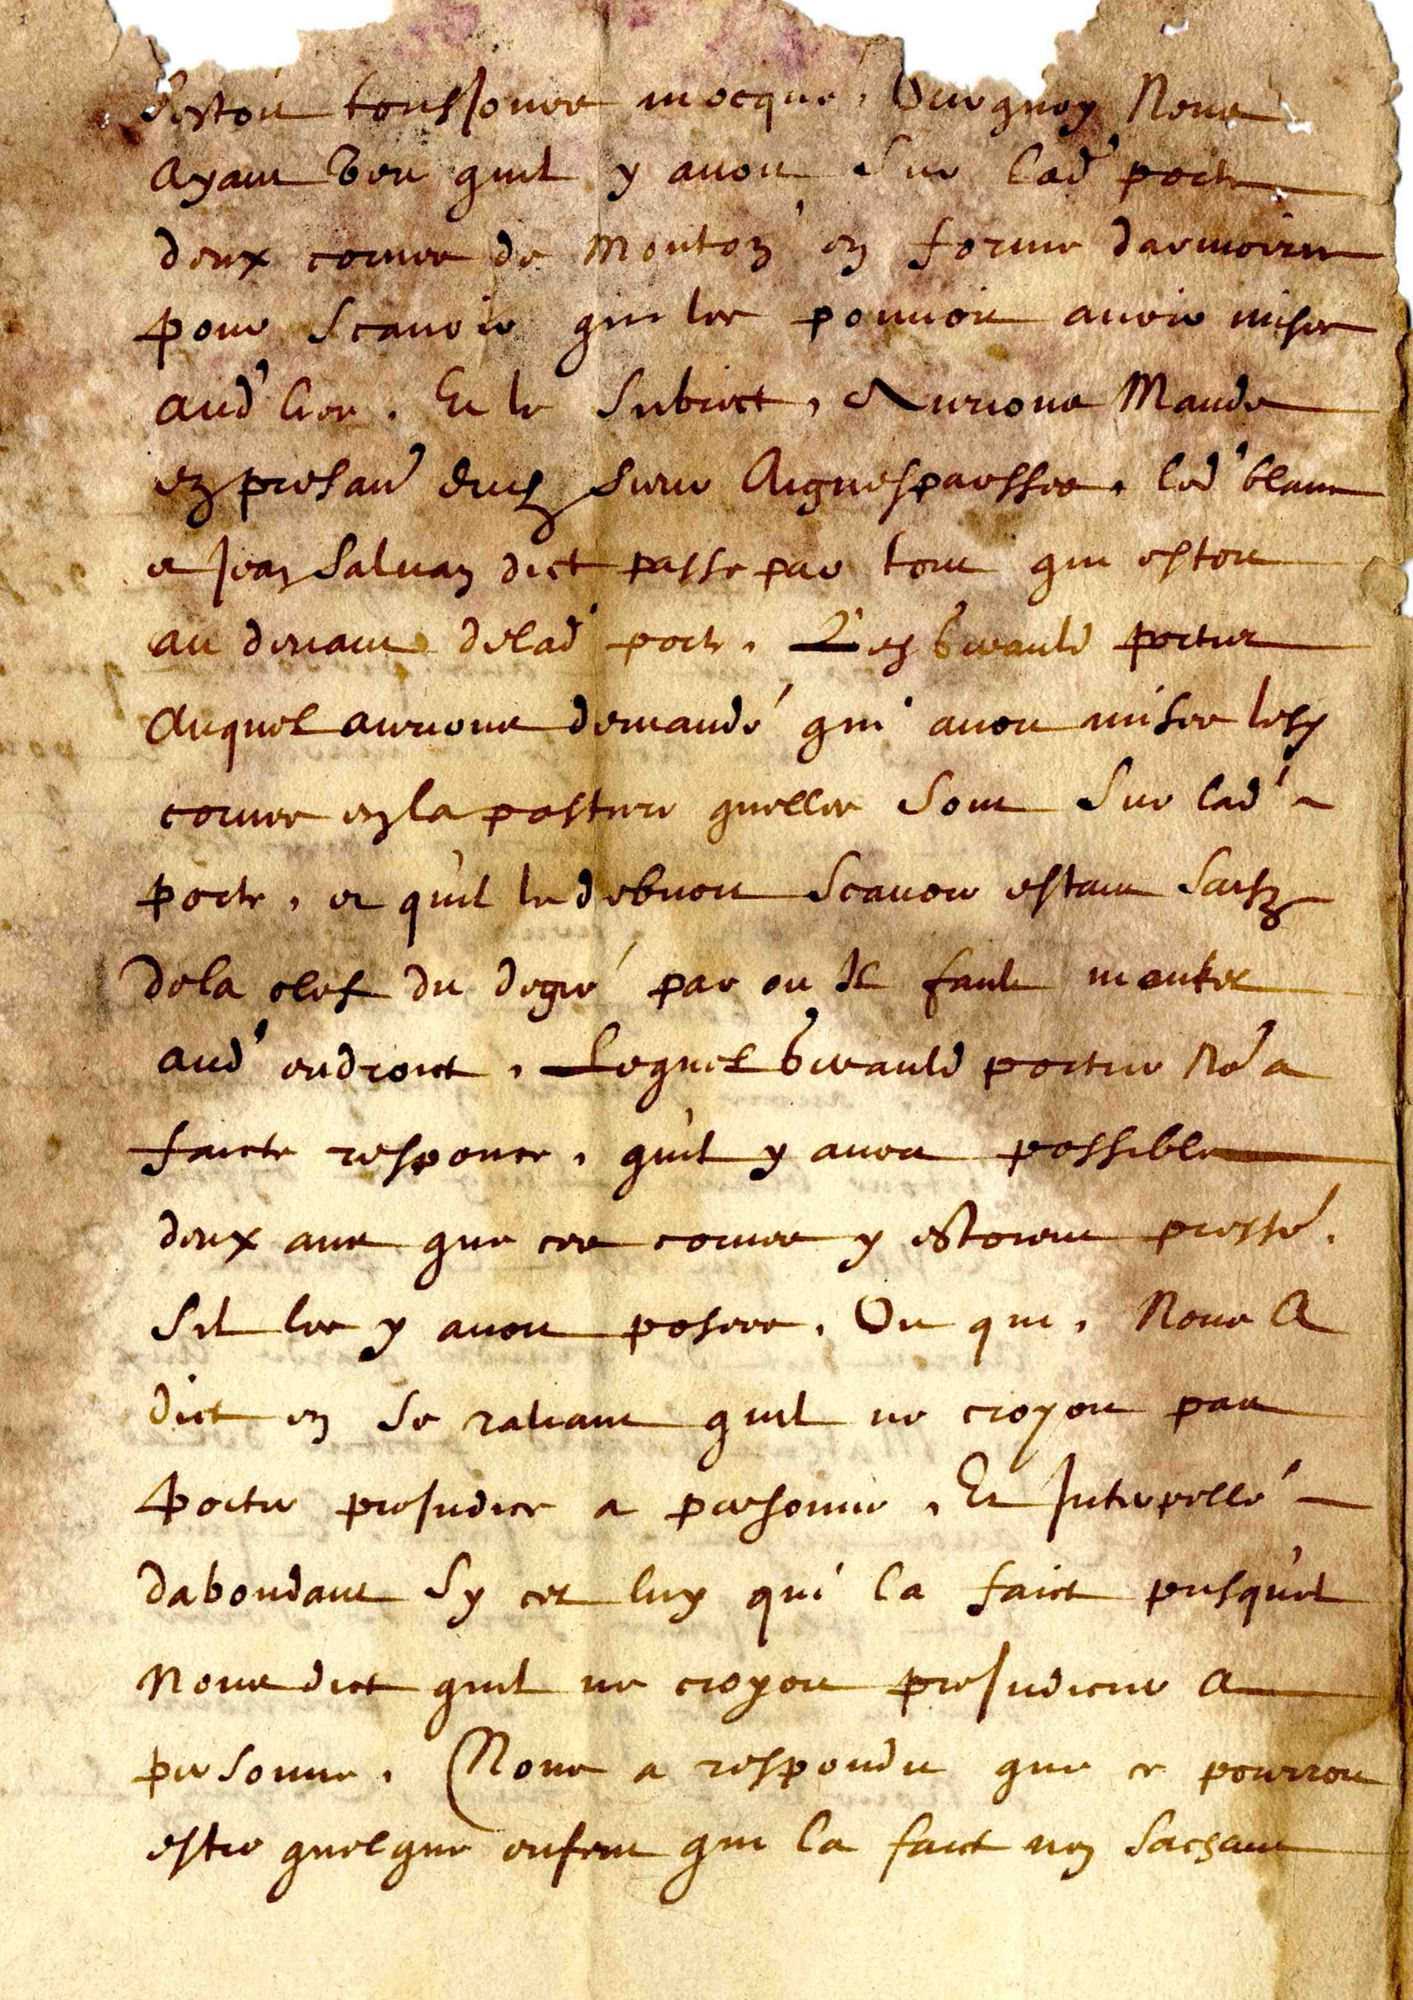 sestoit tousjours mocqué, Surquoy Nous
ayant veu quil y avoit sur lad' porte
deux cornes de mouton en forme darmoirie
pour scavoir qui les pouvoit avoir mises
aud' lieu. Et le subiect, Aurions Mandé
en presance dud sieur Aiguesparsses, led' blanc
et Jean Salvan dict passe par tout qui estoit
au devant delad' porte. Led birauld portier
Auquel aurions demandé qui avoit mises lesd
cornes en la posture quelles sont sur lad'
porte, et quil le debvoit scavoir estant saisy
dela clef du degré par ou Il fault monter
aud' endroit, Lequel birauld portier No' a
faicte responce, quil y avoit possible
deux ans que ces cornes y estoient presse.
Sil les y avoit posees, Ou qui, Nous A
dict en se raliant quil ne croyoit pas
Porter prejudice a personne, Et Interpellé
dabondant Sy cet luy qui la faict puisquil
Nous dict quil ne croyoit prejudicier A
personne. Nous a respondu que ce pourroit
estre quelque enfent qui la faict nen sachant